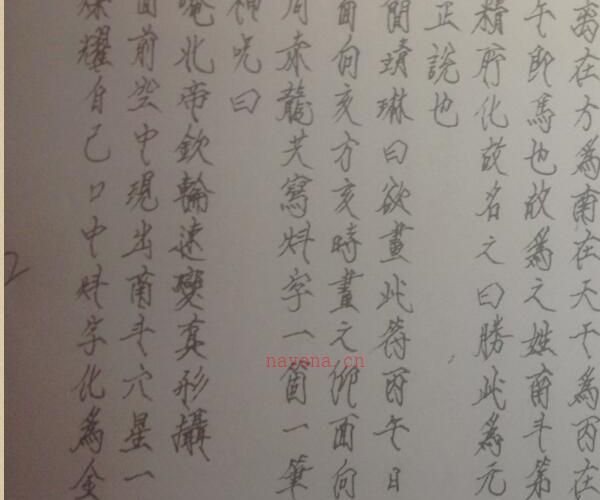 离在方為南在天干為丙在
午即馬也故為之姓南斗第
精孕化故名之曰勝此為元
正說也
閒靖琳曰欲畫此符丙午日
面向亥方亥時畫之仰面向
用朱龍共寫炓字一箇一筆
神咒曰
唵北帝欽輪速變真形攝
面前空中現出南斗六星一
燥耀自己口中炓字化為金
nayona.cn
2